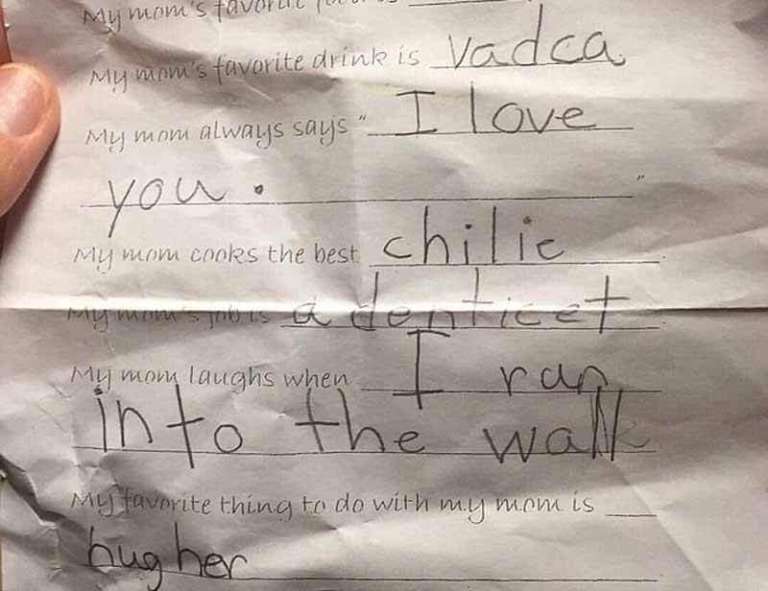 My mom's favorite
My mom's favorite drink is vadca
My mom always says " I love
you. "
My mom cooks the best chilie
My mom's job is a denticet
My mom laughs when I ran
into the wall
My favorite thing to do with my mom is
hug her